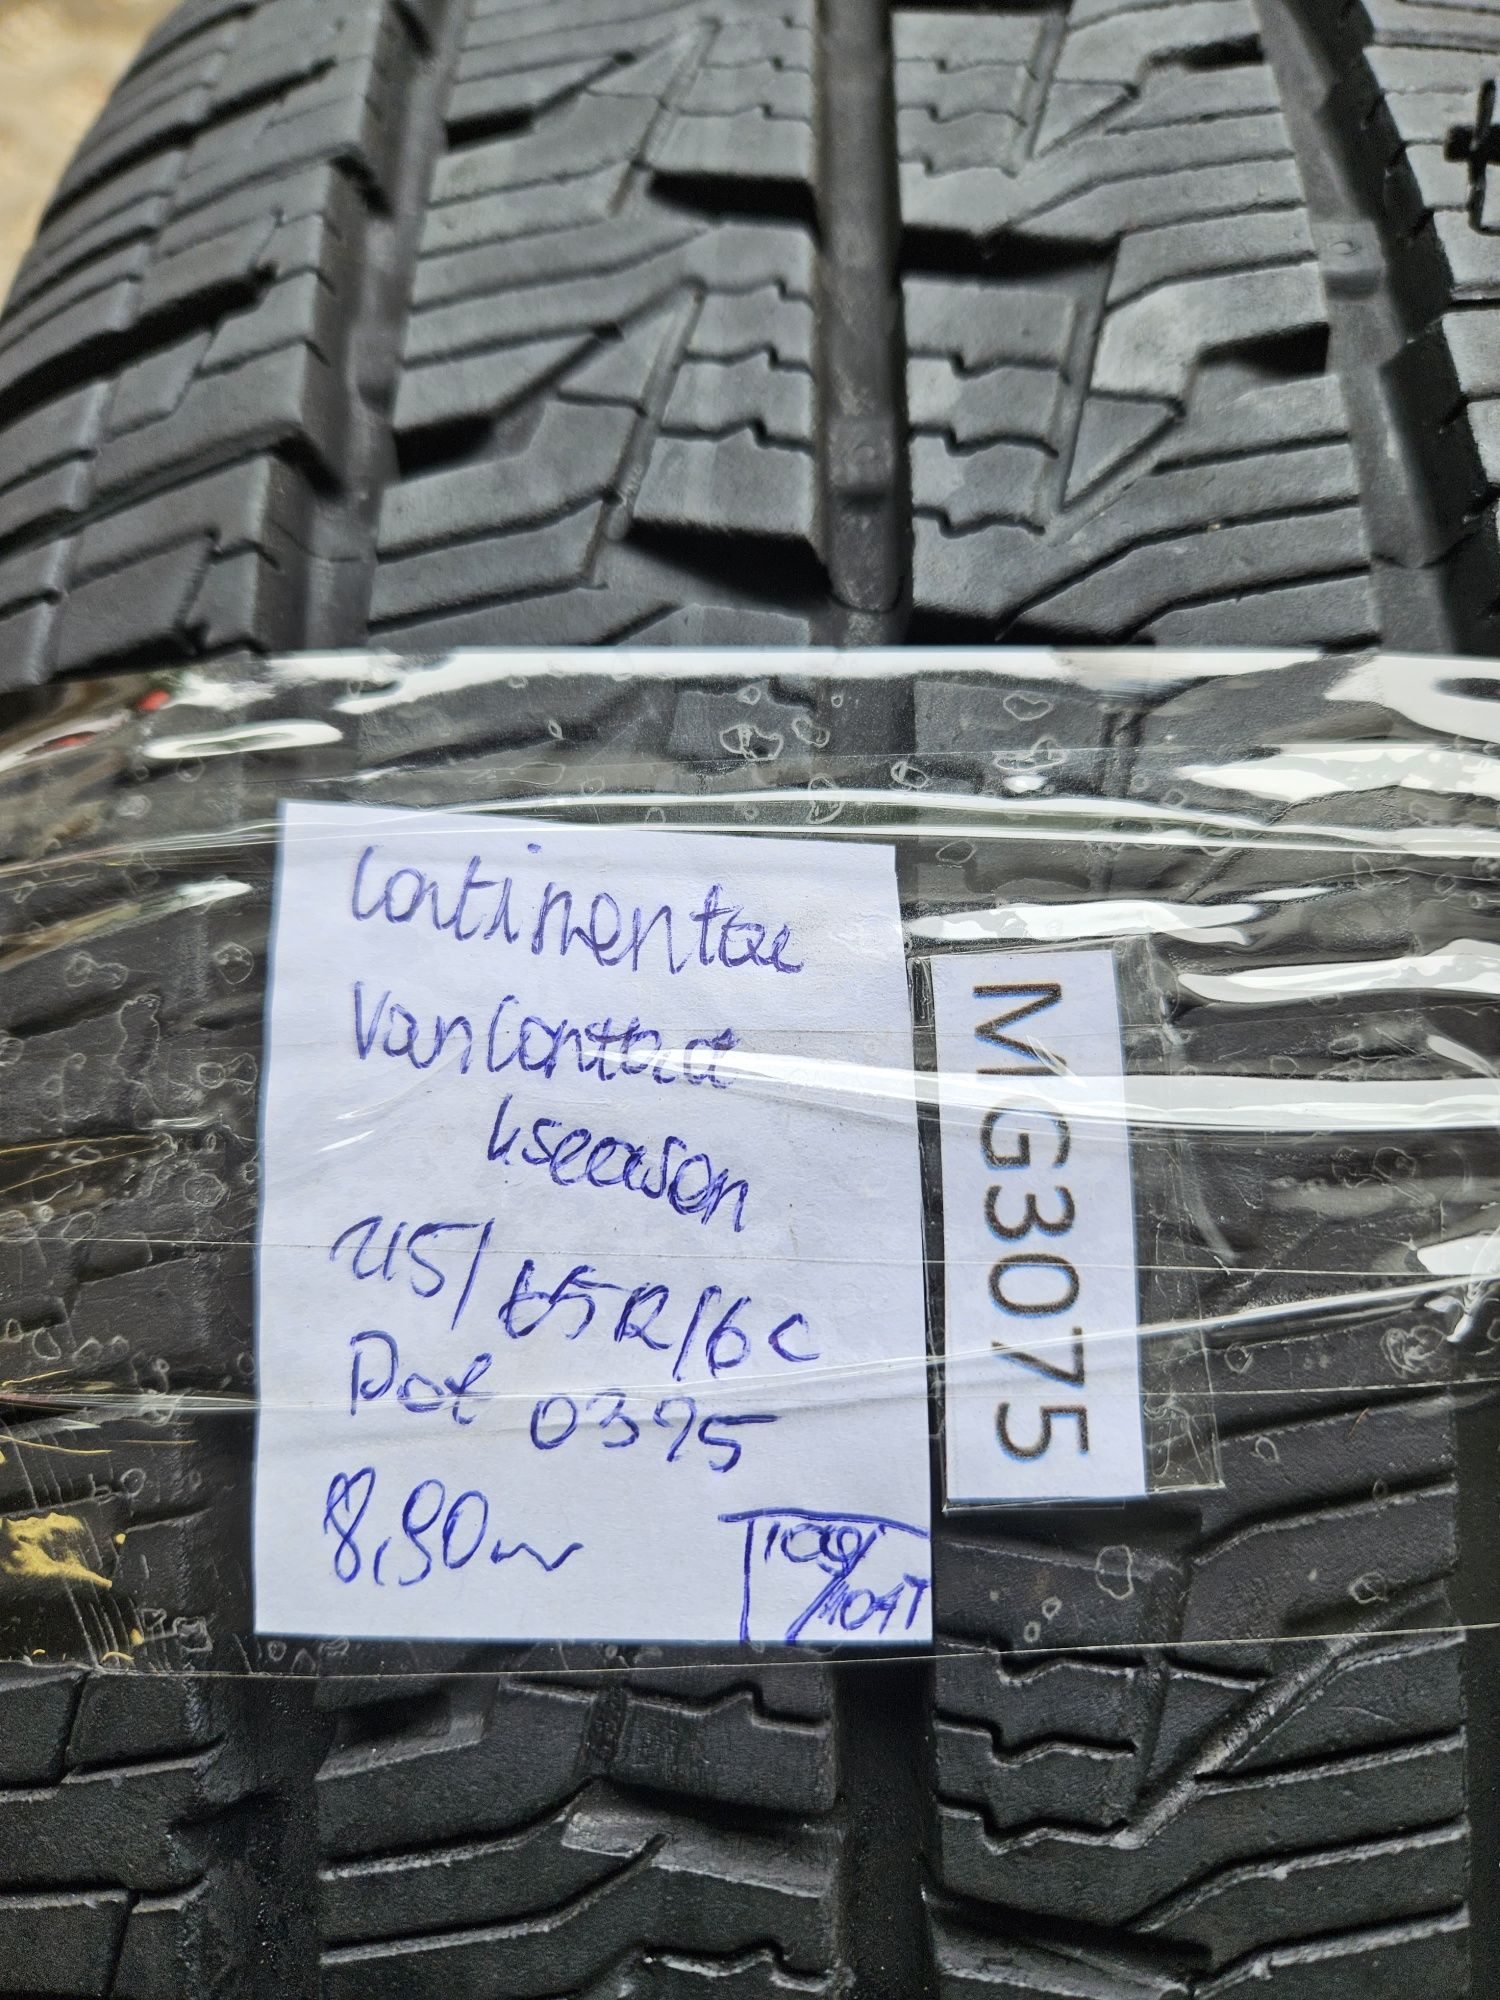 Continental
VanContact
4season
215/65R16C
Dot 0325
8,90mm
109/
107T
MG3075